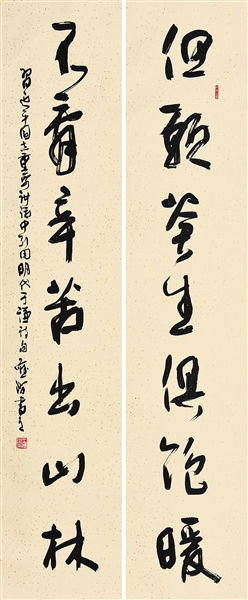 但願蒼生俱飽暖
不辭辛苦出山林
習近平同志重要講話中引用明代于謙詩句